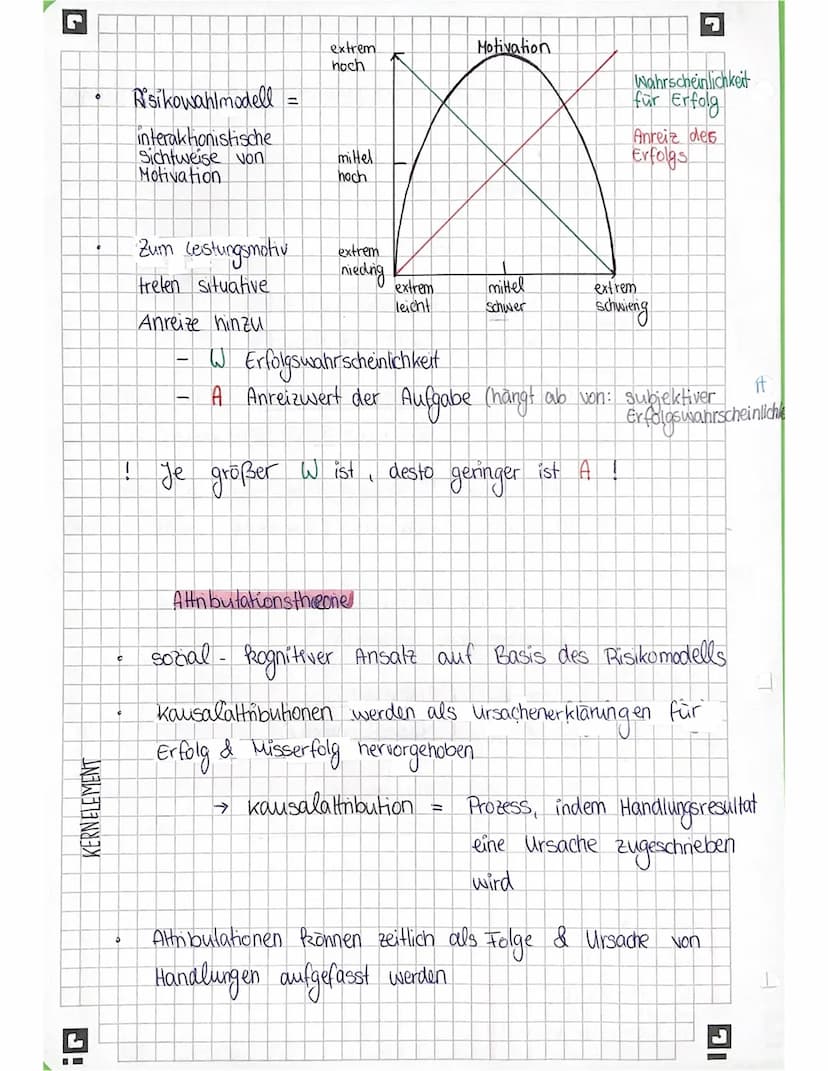 extrem
hoch
Motivation
Wahrscheinlichkeit
für Erfolg
Anreiz des
Erfolgs
• Risikowahlmodell =
interaktionistische
Sichtweise von
Motivation
mittel
hoch
• Zum Leistungsmotiv
treten situative
Anreize hinzu
extrem
niedrig
extrem
leicht
mittel
schwer
extrem
schwierig
– W Erfolgswahrscheinlichkeit
– A Anreizwert der Aufgabe (hängt ab von: subjektiver
Erfolgswahrscheinlichke
! Je größer W ist, desto geringer ist A !
Attributationstheorie
• sozial-kognitiver Ansatz auf Basis des Risikomodells
• Kausalattributionen werden als Ursachenerklärungen für
Erfolg & Misserfolg hervorgehoben
KERNELEMENT
→ Kausalattribution = Prozess, indem Handlungsresultat
eine Ursache zugeschrieben
wird
• Attributationen können zeitlich als Folge & Ursache von
Handlungen aufgefasst werden